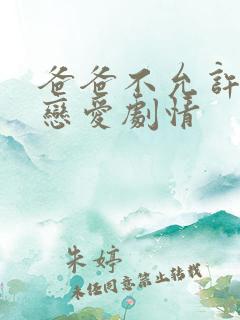 爸爸不允許
戀愛劇情
朱婷
未经同意禁止转载